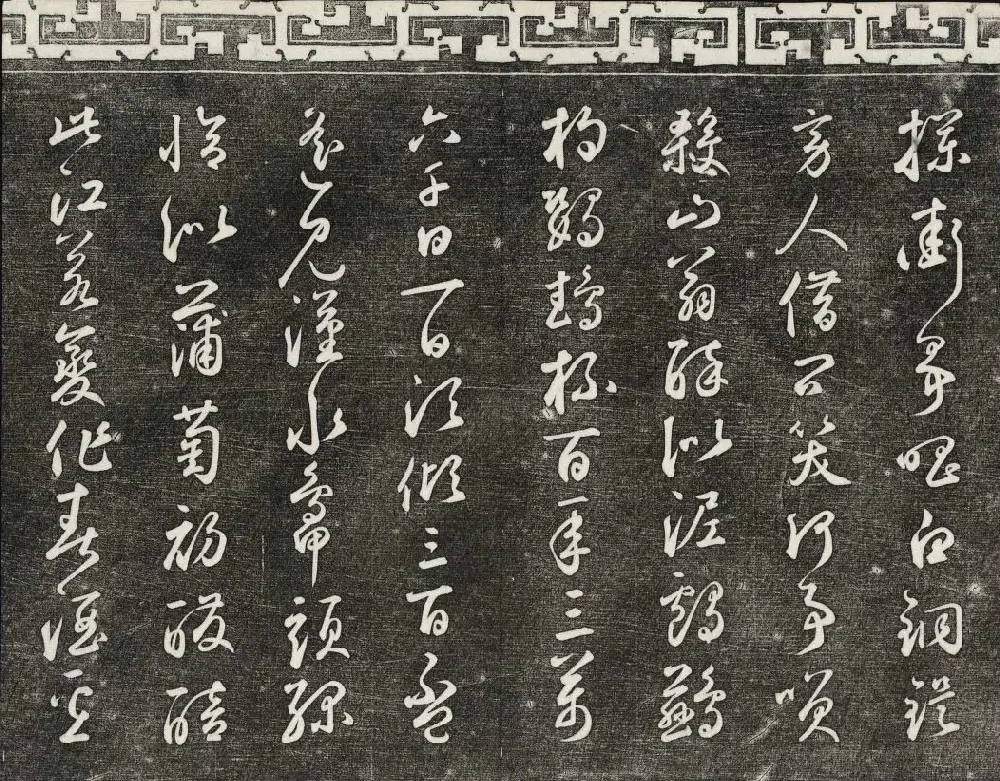 攔街爭唱白銅鍉
旁人借問笑何事咲
殺山翁醉似泥鸕鶿
杓鸚鵡杯百年三萬
六千日一日須傾三百盃
遙見漢水鴨頭綠
恰似蒲萄初醱醅
此江若變作春酒